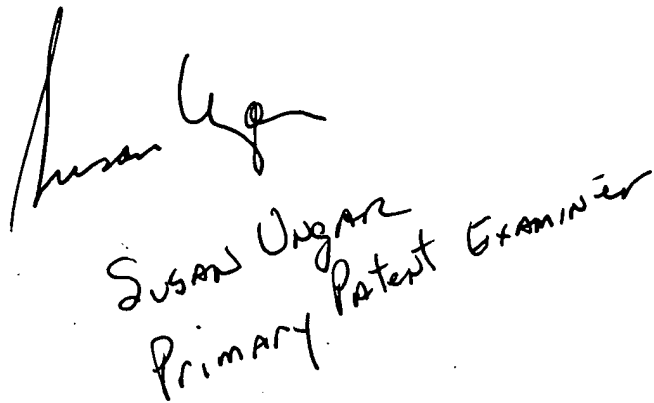 Susan Ungar
Susan Ungar
Primary Patent Examiner